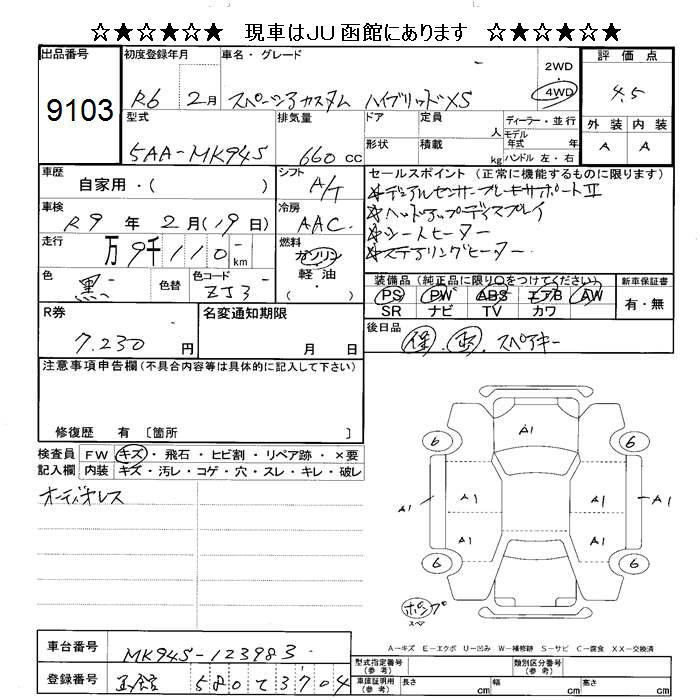 ☆★☆★☆★ 現車はJU函館にあります ☆★☆★☆★
出品番号 初度登録年月 車名・グレード 評価点
9103 R6 2月 スペーシアカスタム ハイブリッドXS 2WD 4WD 4.5
型式 排気量 ドア 定員 人 ディーラー・並行 外装 内装
5AA-MK94S 660 cc 形状 積載 kg モデル年式 年 ハンドル 左・右 A A
車歴 自家用・( ) シフト A/T セールスポイント(正常に機能するものに限ります)
☆デュアルセンサーブレーキサポートⅡ
☆ヘッドアップディスプレイ
☆シートヒーター
☆ステアリングヒーター
車検 R9年 2月(19日) 冷房 AAC
走行 万9千110 km 燃料 ガソリン 軽油・( )
色 黒 色替 色コード ZJ3
装備品(純正品に限り○をつけてください) 新車保証書
PS PW ABS エアB AW 有・無
SR ナビ TV カワ
R券 7.230 円 名変通知期限 月 日
後日品 保・取・スペアキー
注意事項申告欄(不具合内容等は具体的に記入して下さい)
修復歴 有 〔箇所 〕
検査員 FW キズ・飛石・ヒビ割・リペア跡・×要
記入欄 内装 キズ・汚レ・コゲ・穴・スレ・キレ・破レ
オーディオレス
A1
6 6
A1 A1 A1 A1
A1 A1
6 6
ポンプ
スペア
A-キズ E-エクボ U-凹み W-補修跡 S-サビ C-腐食 XX-交換済
車台番号 MK94S-123983
登録番号 函館 580 て 3704
型式指定番号(参考) 類別区分番号(参考)
車庫証明用(参考) 長さ cm 幅 cm 高さ cm